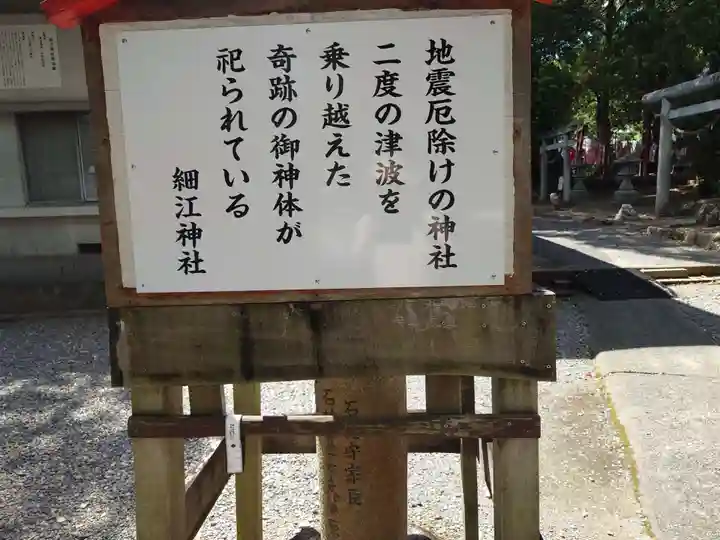 地震厄除けの神社
二度の津波を
乗り越えた
奇跡の御神体が
祀られている
細江神社